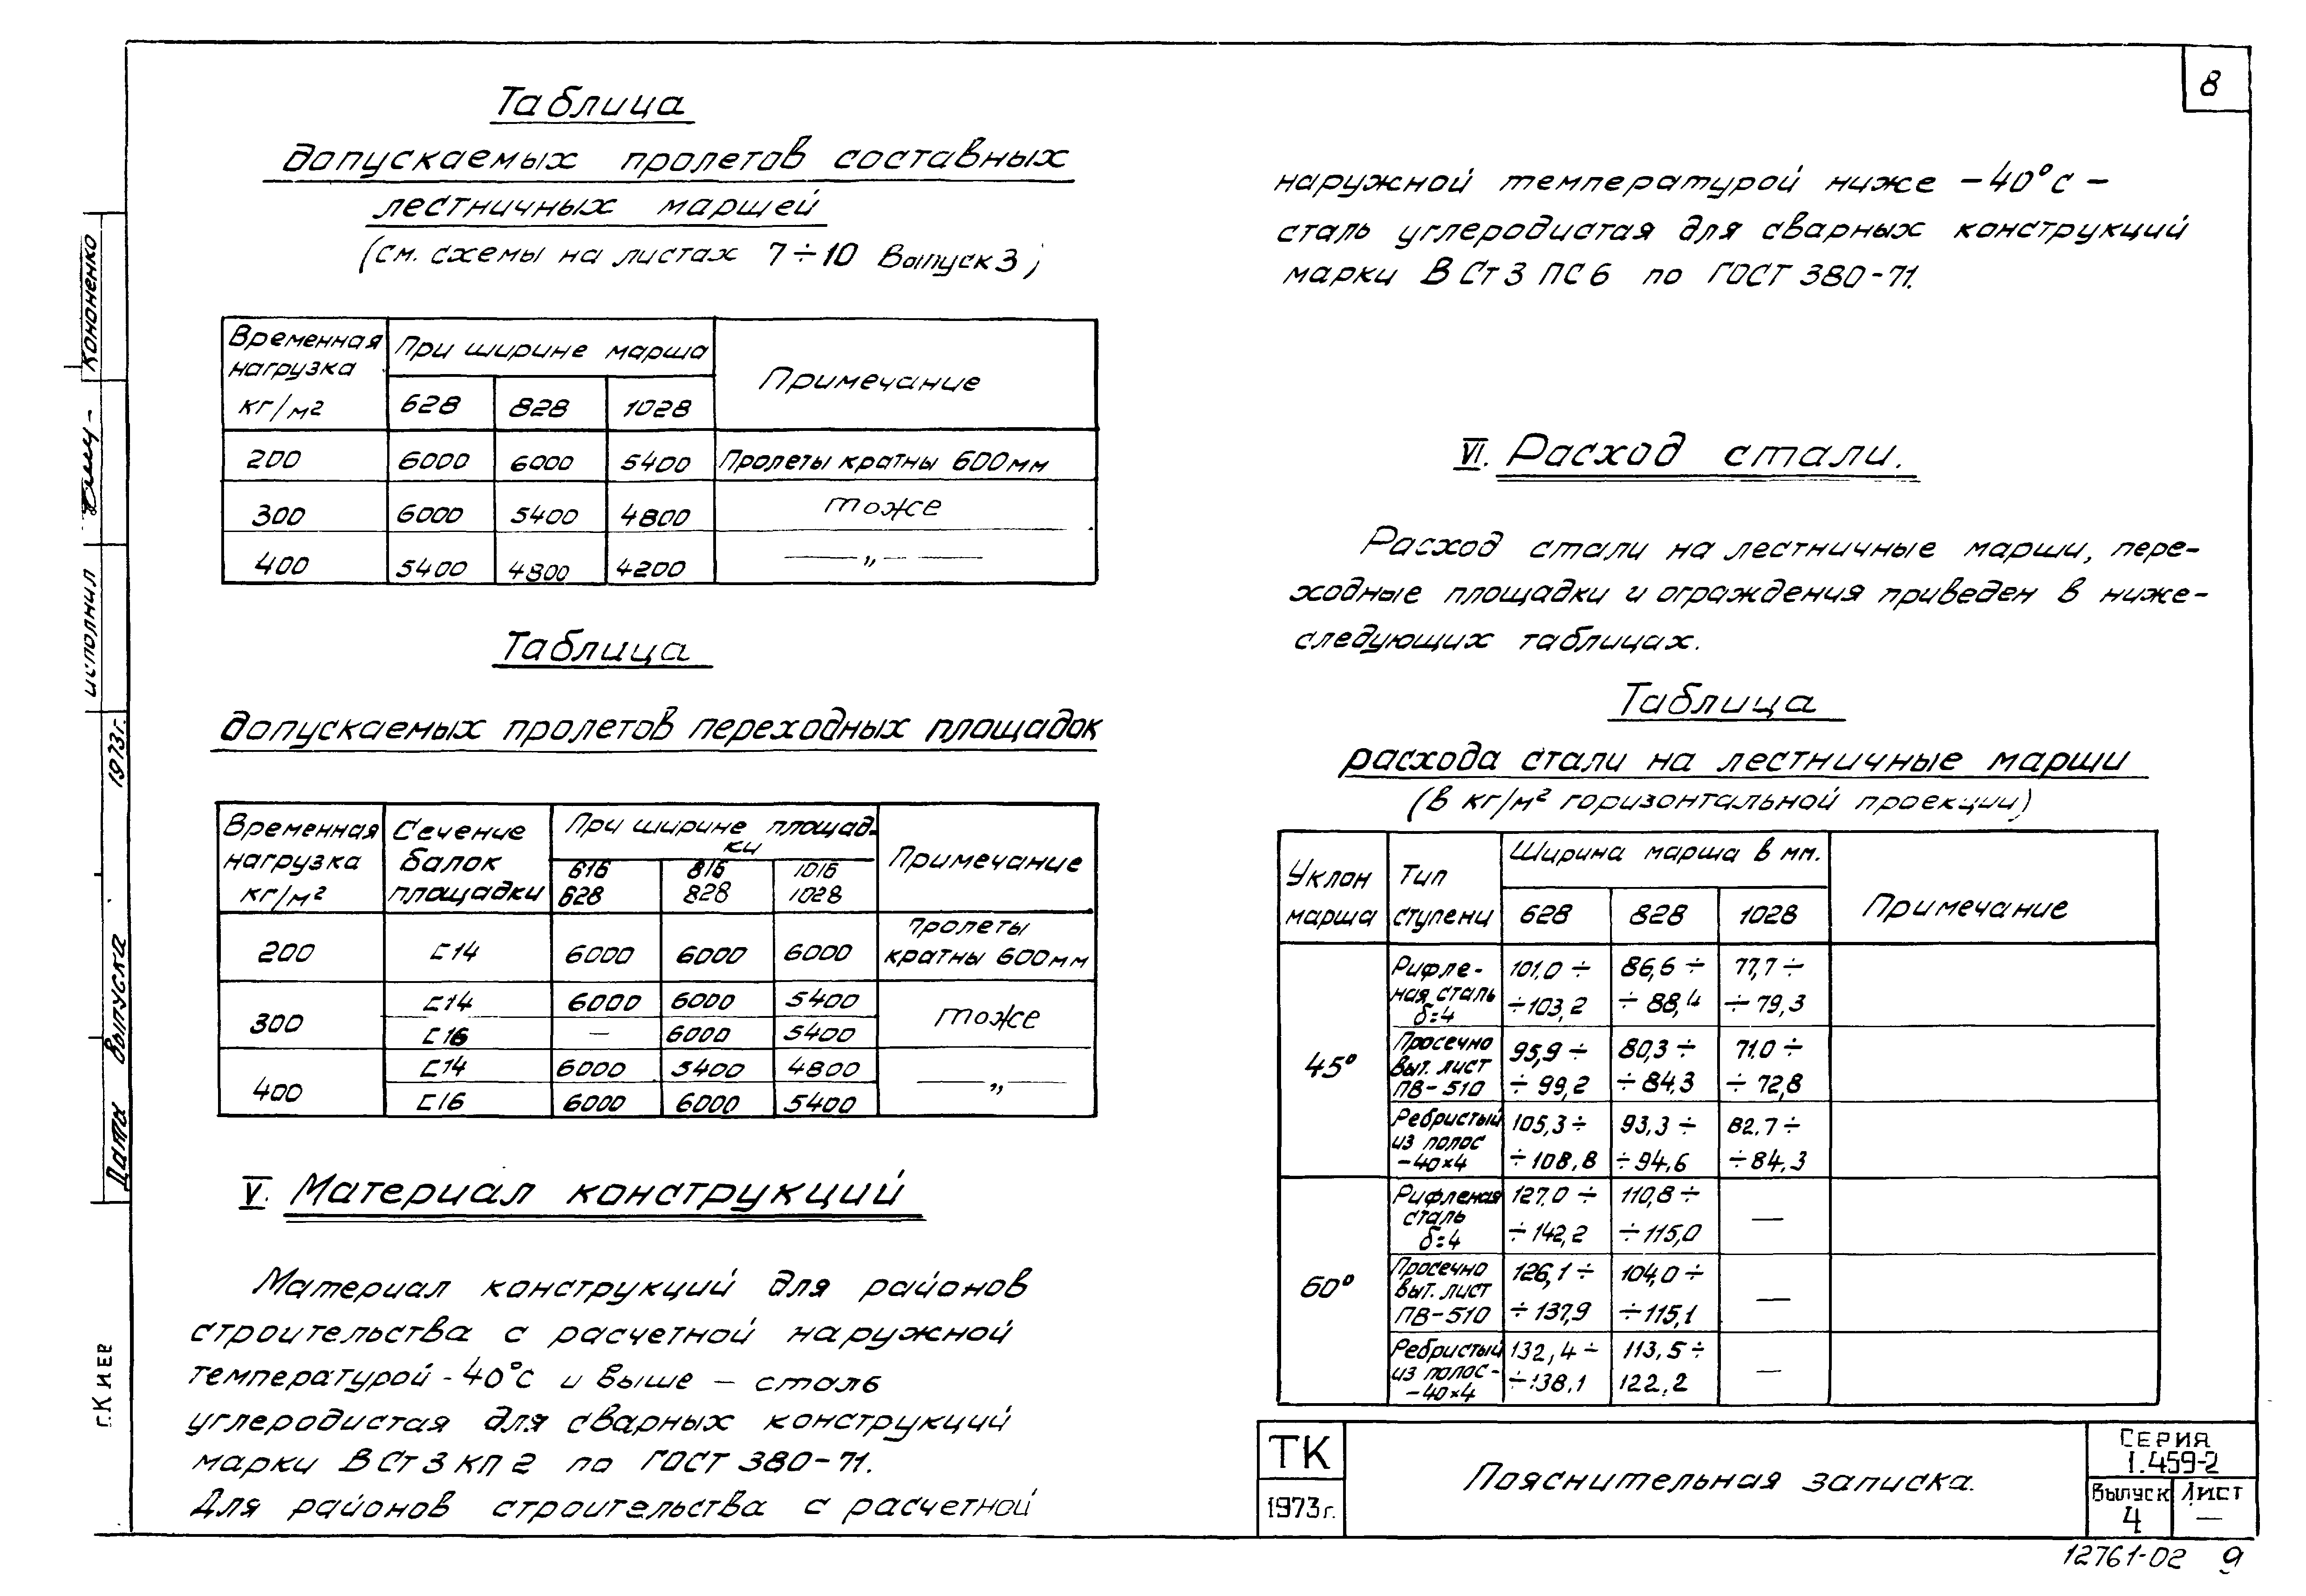 8
Таблица
допускаемых пролетов составных
лестничных маршей
(см. схемы на листах 7÷10 Выпуск 3)
Временная нагрузка кг/м² | При ширине марша | Примечание
628 | 828 | 1028
200 | 6000 | 6000 | 5400 | Пролеты кратны 600мм
300 | 6000 | 5400 | 4800 | тоже
400 | 5400 | 4800 | 4200 | —„—
Таблица
допускаемых пролетов переходных площадок
Временная нагрузка кг/м² | Сечение балок площадки | При ширине площадки | Примечание
616 628 | 816 828 | 1016 1028
200 | ⊏14 | 6000 | 6000 | 6000 | пролеты кратны 600мм
300 | ⊏14 | 6000 | 6000 | 5400 | тоже
⊏16 | — | 6000 | 5400
400 | ⊏14 | 6000 | 5400 | 4800 | —„—
⊏16 | 6000 | 6000 | 5400
V. Материал конструкций
Материал конструкций для районов
строительства с расчетной наружной
температурой -40°с и выше — сталь
углеродистая для сварных конструкций
марки В Ст 3 кп 2 по ГОСТ 380-71.
Для районов строительства с расчетной
наружной температурой ниже -40°с -
сталь углеродистая для сварных конструкций
марки В Ст 3 ПС 6 по ГОСТ 380-71.
VI. Расход стали.
Расход стали на лестничные марши, пере-
ходные площадки и ограждения приведен в ниже-
следующих таблицах.
Таблица
расхода стали на лестничные марши
(в кг/м² горизонтальной проекции)
Уклон марша | Тип ступени | Ширина марша в мм. | Примечание
628 | 828 | 1028
45° | Рифле-ная сталь δ=4 | 101.0 ÷ ÷103,2 | 86,6 ÷ ÷ 88,4 | 77,7 ÷ ÷ 79,3
Просечно выт. лист ПВ-510 | 95,9 ÷ ÷ 99,2 | 80,3 ÷ ÷ 84,3 | 71.0 ÷ ÷ 72,8
Ребристый из полос -40×4 | 105,3 ÷ ÷ 108,8 | 93,3 ÷ ÷94,6 | 82.7 ÷ ÷84,3
60° | Рифленая сталь δ=4 | 127.0 ÷ ÷142,2 | 110,8 ÷ ÷115,0 | —
Просечно выт. лист ПВ-510 | 126,1 ÷ ÷ 137,9 | 104,0 ÷ ÷115,1 | —
Ребристый из полос - -40×4 | 132,4 ÷ ÷138,1 | 113,5 ÷ 122,2 | —
ТК
1973г.
Пояснительная записка.
Серия
1.459-2
Выпуск
4
Лист
—
12761-02 9
Кононенко
исполнил
Дата выпуска 1973г.
г.Киев